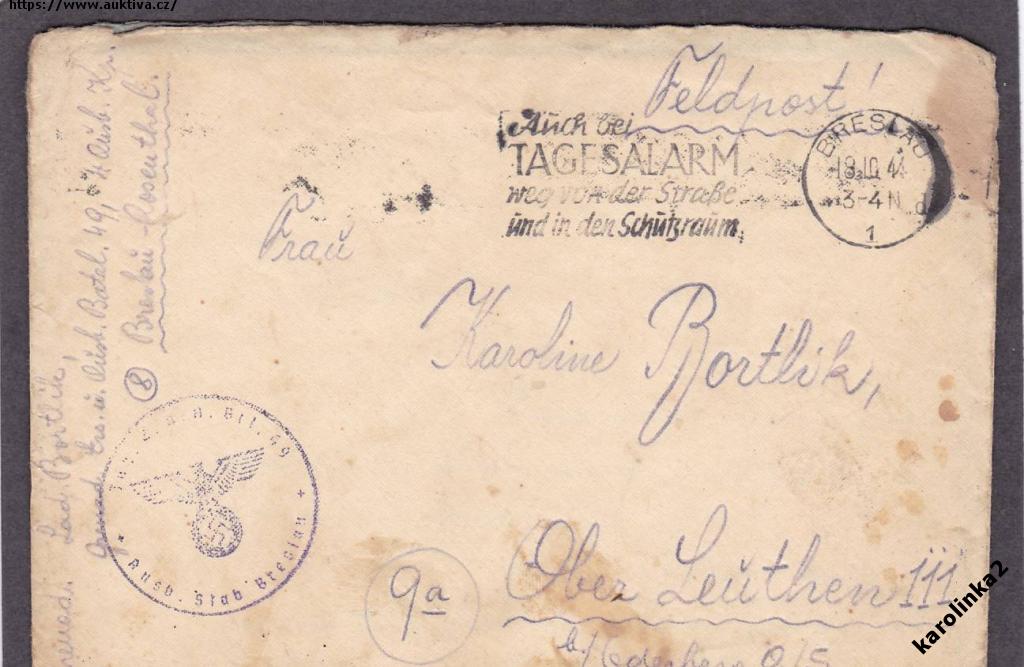 https://www.auktiva.cz/
Feldpost!
Auch bei
TAGESALARM
weg von der Straße
und in den Schutzraum.
BRESLAU
18.10.44
3-4 N
d
1
Frau
Karoline Bortlik,
9a
Ober Leuthen 111
b./ O/S
Bortlik,
Ers. u. Ausb. Batel. 49, Ausb. Kp.
8 Breslau-Rosenthal.
Ausb. Stab Breslau
karolinka2